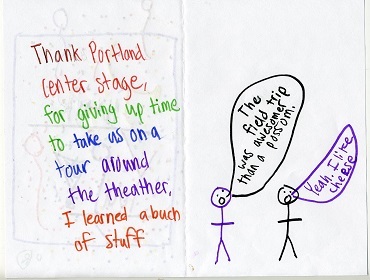 Thank Portland
center stage,
for giving up time
to take us on a
tour around
the theather.
I learned a buch
of stuff
The
field trip
was awesomer
than a
possom.
Yeah. I like
cheese